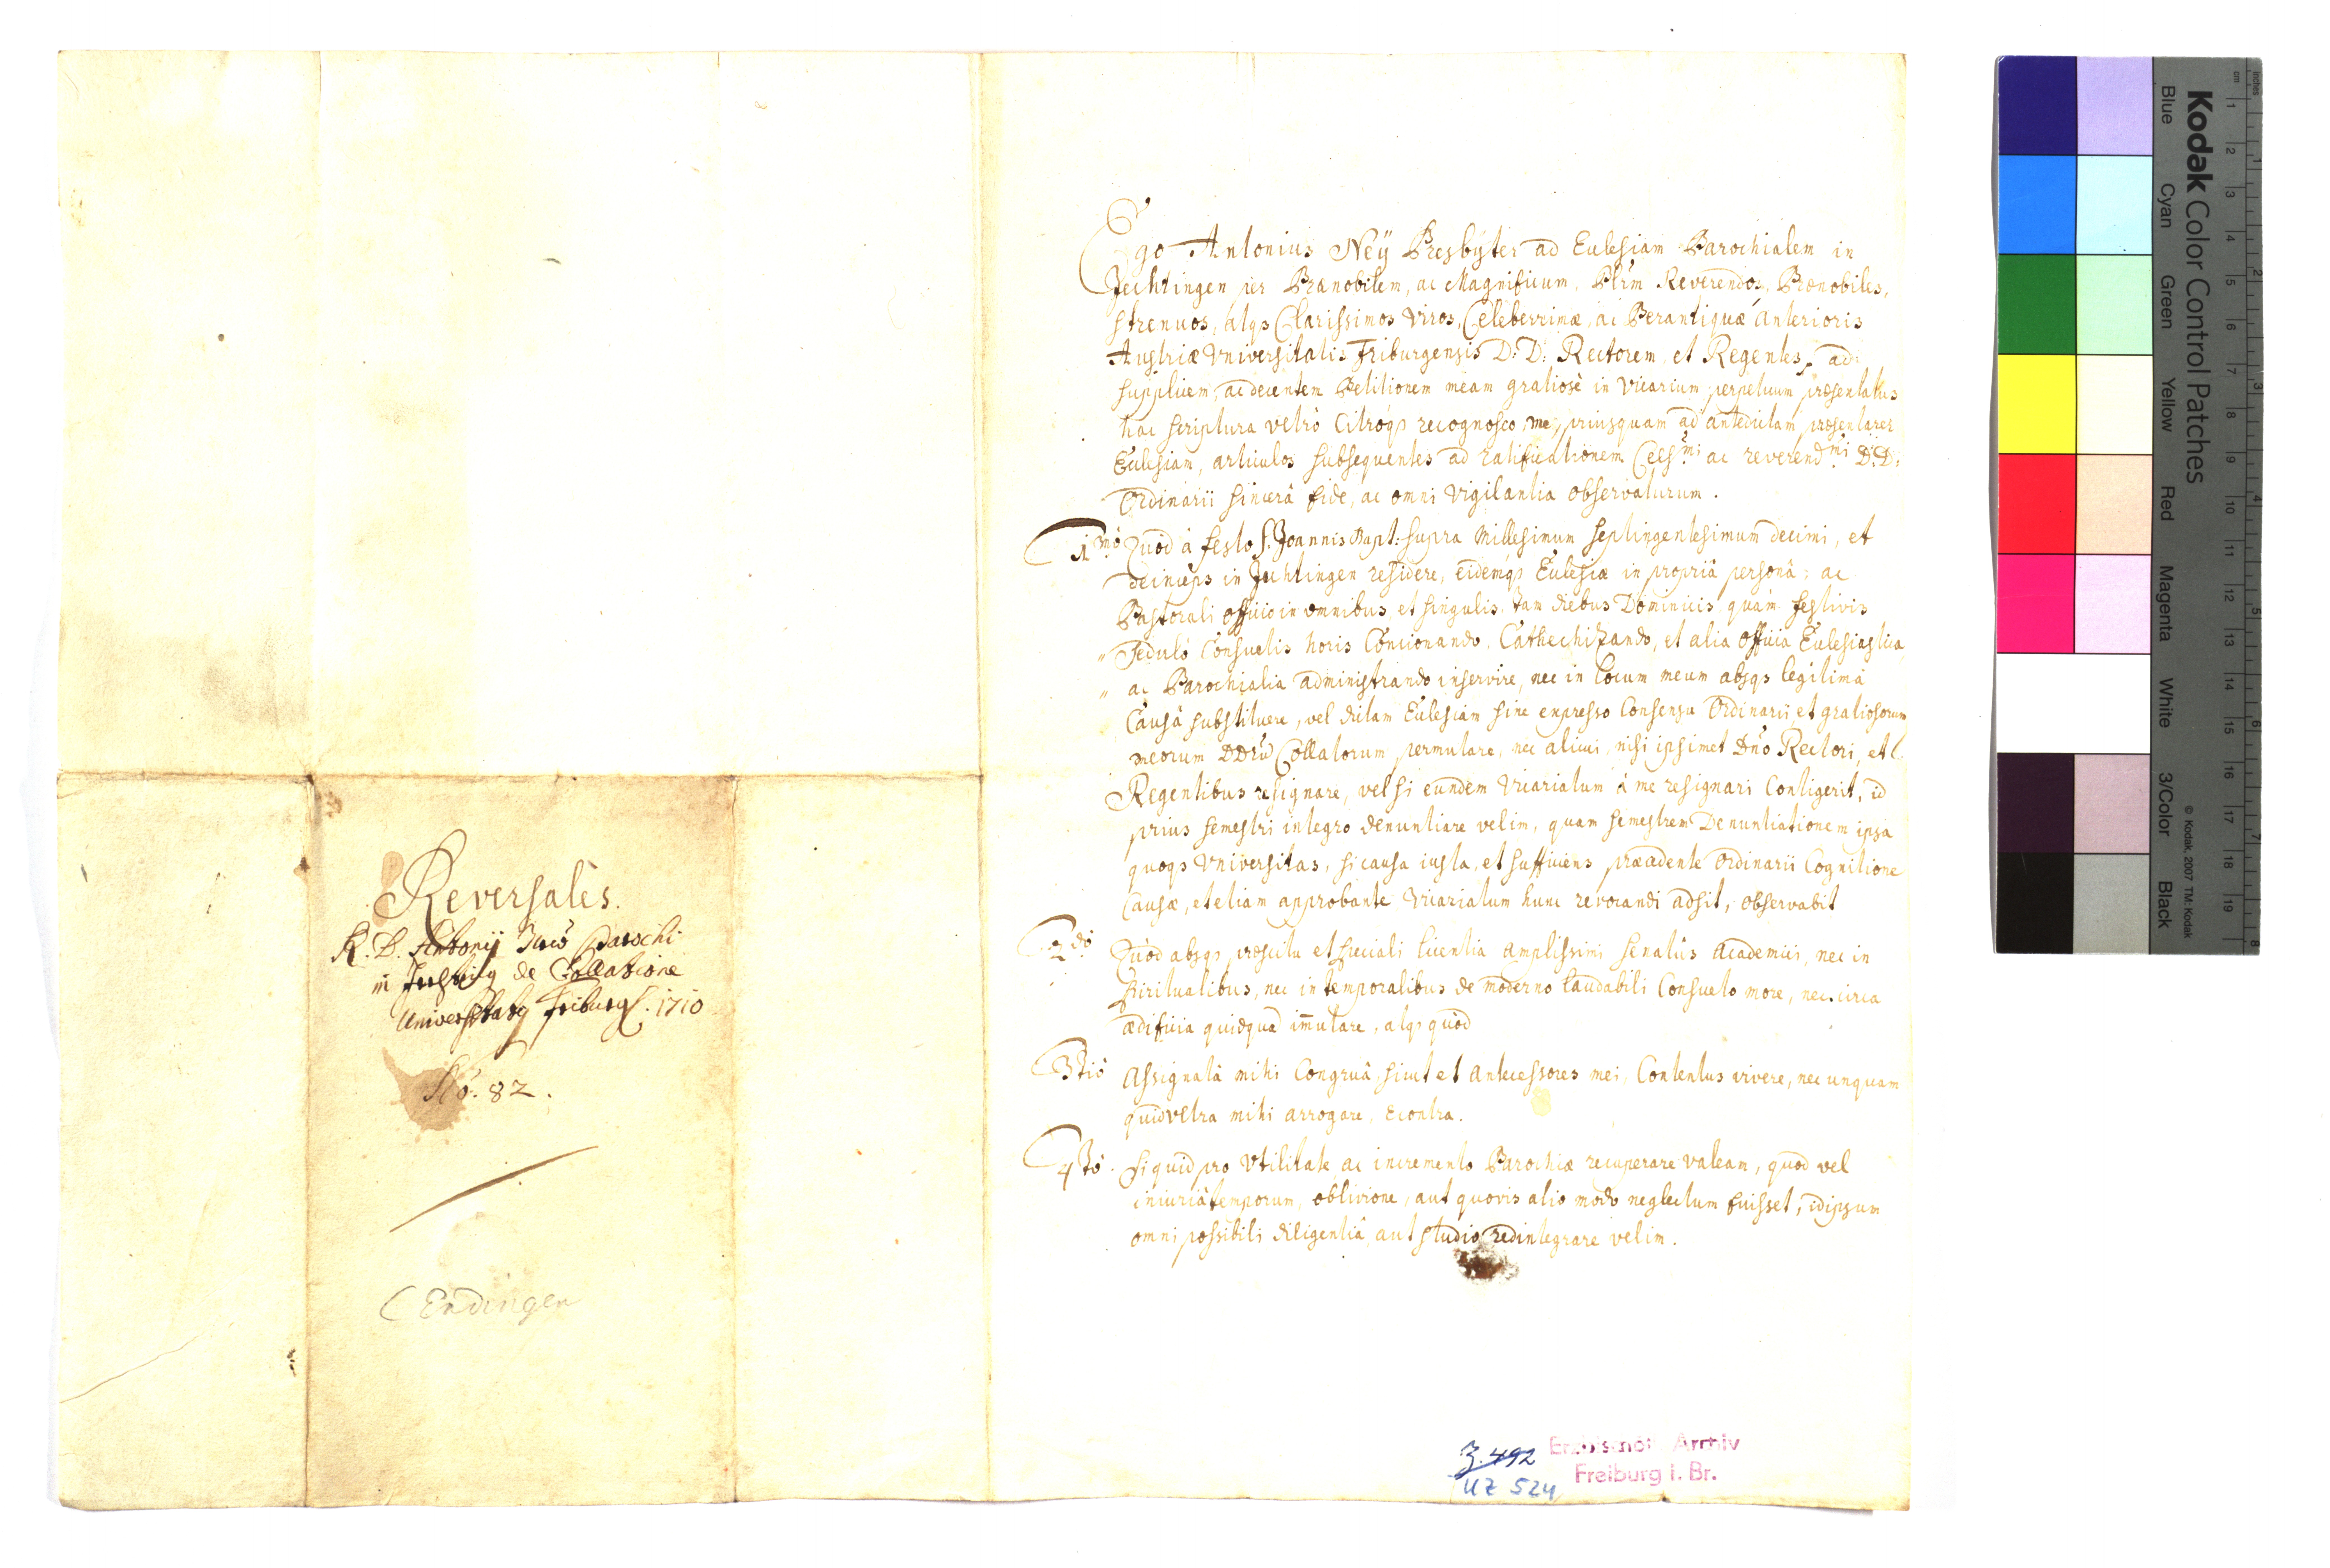 Reversales.
R. D. Antonij Parochi
in de Collatione
Universitatis Friburg. 1710
No. 82.
Endingen
Ego Antonius Neÿ Presbÿter ad Eulesiam Parochialem in
Jechtingen per Prænobilem, ac Magnificum, Plrm Reverendos, Prænobiles,
strenuos, atqs Clarissimos Viros, Celeberrimæ, ac Perantiquæ anterioris
Austriæ Vniversitatis Friburgensis D: D: Rectorem et Regentes, ad
supplicem, ac decentem Petitionem meam gratiosè in Vicarium perpetuum præsentatus
hac scriptura vltrò Citròqs recognosco, me, priusquam ad antedictam præsentarer
Ecclesiam, articulos subsequentes ad ratificationem Cels.mi ac reverend.mi D: D:
Ordinarii sincerâ fide, ac omni Vigilantia observaturum.
1mò Quod à festo S. Joannis Bapt: supra Millesimum septingentesimum decimi, et
deinceps in Jechtingen residere, eidemqs Ecclesiæ in propriâ personâ, ac
Pastorali officio in omnibus, et singulis tam diebus Dominicis quàm festivis
sedulò Consuetis horis Concionando, Cathechizando, et alia officia Ecclesiastica,
ac Parochialia administrando inservire, nec in locum meum absqs legitimâ
Causâ substituere, vel dictam Ecclesiam sine expresso Consensu Ordinarii et gratiosorum
meorum DDrũ Collatorum permutare, nec alicui, nisi ipsimet Dño Rectori, et
Regentibus resignare, vel si eundem Vicariatum à me resignari Contigerit, id
prius semestri integro denuntiare velim, quam semestrem Denuntiationem ipsa
quoqs Vniversitas, si causa iusta, et sufficiens præcedente Ordinarii Cognitione
Causæ, et etiam approbante Vicariatum hunc revocandi adsit, observabit
2dò Quod absqs præscitu et speciali licentia amplissimi senatûs Academici, nec in
spiritualibus, nec in temporalibus de moderno laudabili Consueto more, nec circa
ædificia quidquã im̄utare, atqs quòd
3tiò Assignatâ mihi Congruâ, sicut et antecessores mei, Contentus vivere, nec unquam
quid vltra mihi arrogare, econtra.
4tò. Si quid pro Vtilitate ac incremento Parochiæ recuperare valeam, quod vel
iniuriâ temporum, oblivione, aut quovis alio modo neglectum fuisset, idipsum
omni possibili diligentiâ aut studio redintegrare velim.
Z. 492
UZ 524
Erzbischöfl. Archiv
Freiburg i. Br.
Kodak Color Control Patches
Blue Cyan Green Yellow Red Magenta White 3/Color Black
© Kodak, 2007 TM: Kodak
cm 1 2 3 4 5 6 7 8 9 10 11 12 13 14 15 16 17 18 19
inches 1 2 3 4 5 6 7 8